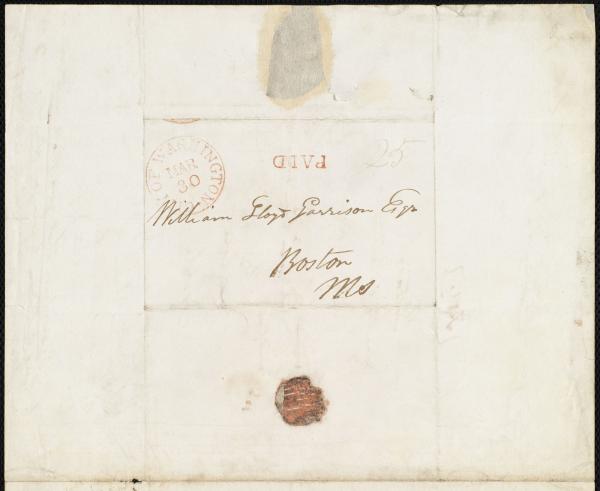 OF WASHINGTON
MAR
30
PAID
25
William Lloyd Garrison Esqr
Boston
Ms